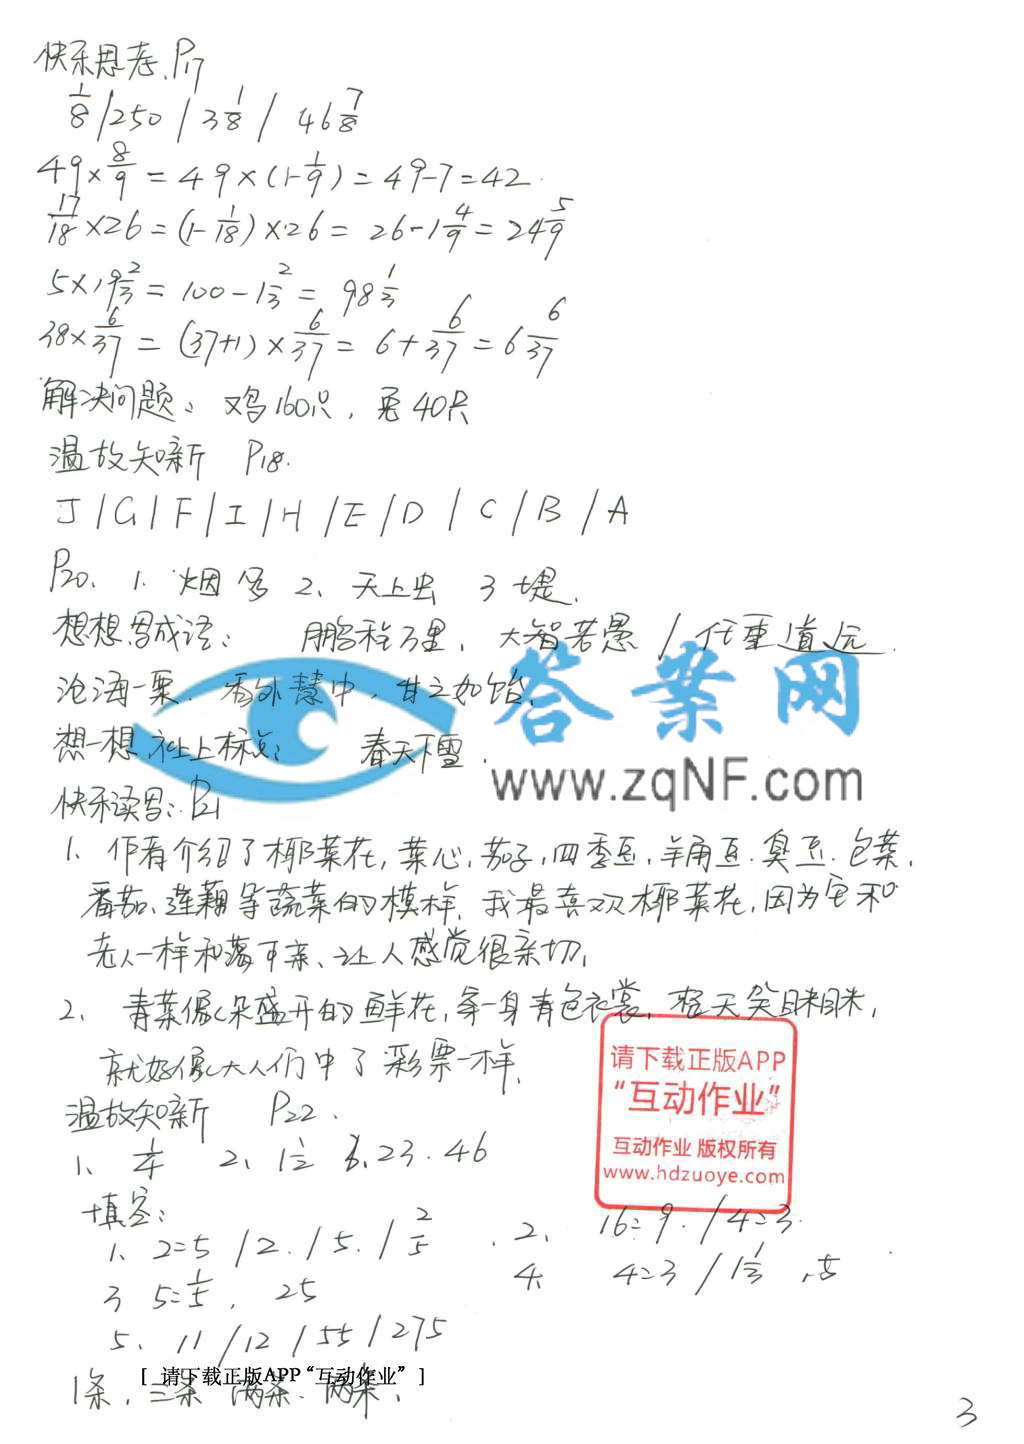 快乐思考、P17
1/8 / 250 / 3 1/8 / 46 7/8
49×8/9=49×(1-1/9)=49-7=42.
17/18×26=(1-1/18)×26=26-1 4/9=24 5/9
5×19 2/3=100-1 2/3=98 1/3
38×6/37=(37+1)×6/37=6+6/37=6 6/37
解决问题：鸡160只，兔40只
温故知新 P18.
J/G/F/I/H/E/D/C/B/A
P20、1. 烟 2、天上虫 3 堤.
想想写成语：鹏程万里、大智若愚/任重道远.
沧海一粟. 秀外慧中，甘之如饴.
想一想，补上标点：春天下雪.
快乐读写：P21
1、作者介绍了椰菜花，菜心，茄子，四季豆，羊角豆.臭豆.包菜，
番茄、莲藕等蔬菜的模样，我最喜欢椰菜花，因为它和
老人一样和蔼可亲、让人感觉很亲切，
2、青菜像朵盛开的鲜花，穿一身青色衣裳，整天笑眯眯，
就好像大人们中了彩票一样，
温故知新 P22.
1、1/4 2、1 1/2 3、23.46
填空：
1、2=5 /2. /5. /2/5 2、16=9. /4=3.
3 5=1/5，25 4、4=3 /1 1/3
5、11/12/55/275
1条，三条 两条.两条，
答案网
www.zqNF.com
请下载正版APP
“互动作业”
互动作业 版权所有
www.hdzuoye.com
[ 请下载正版APP“互动作业” ]
3